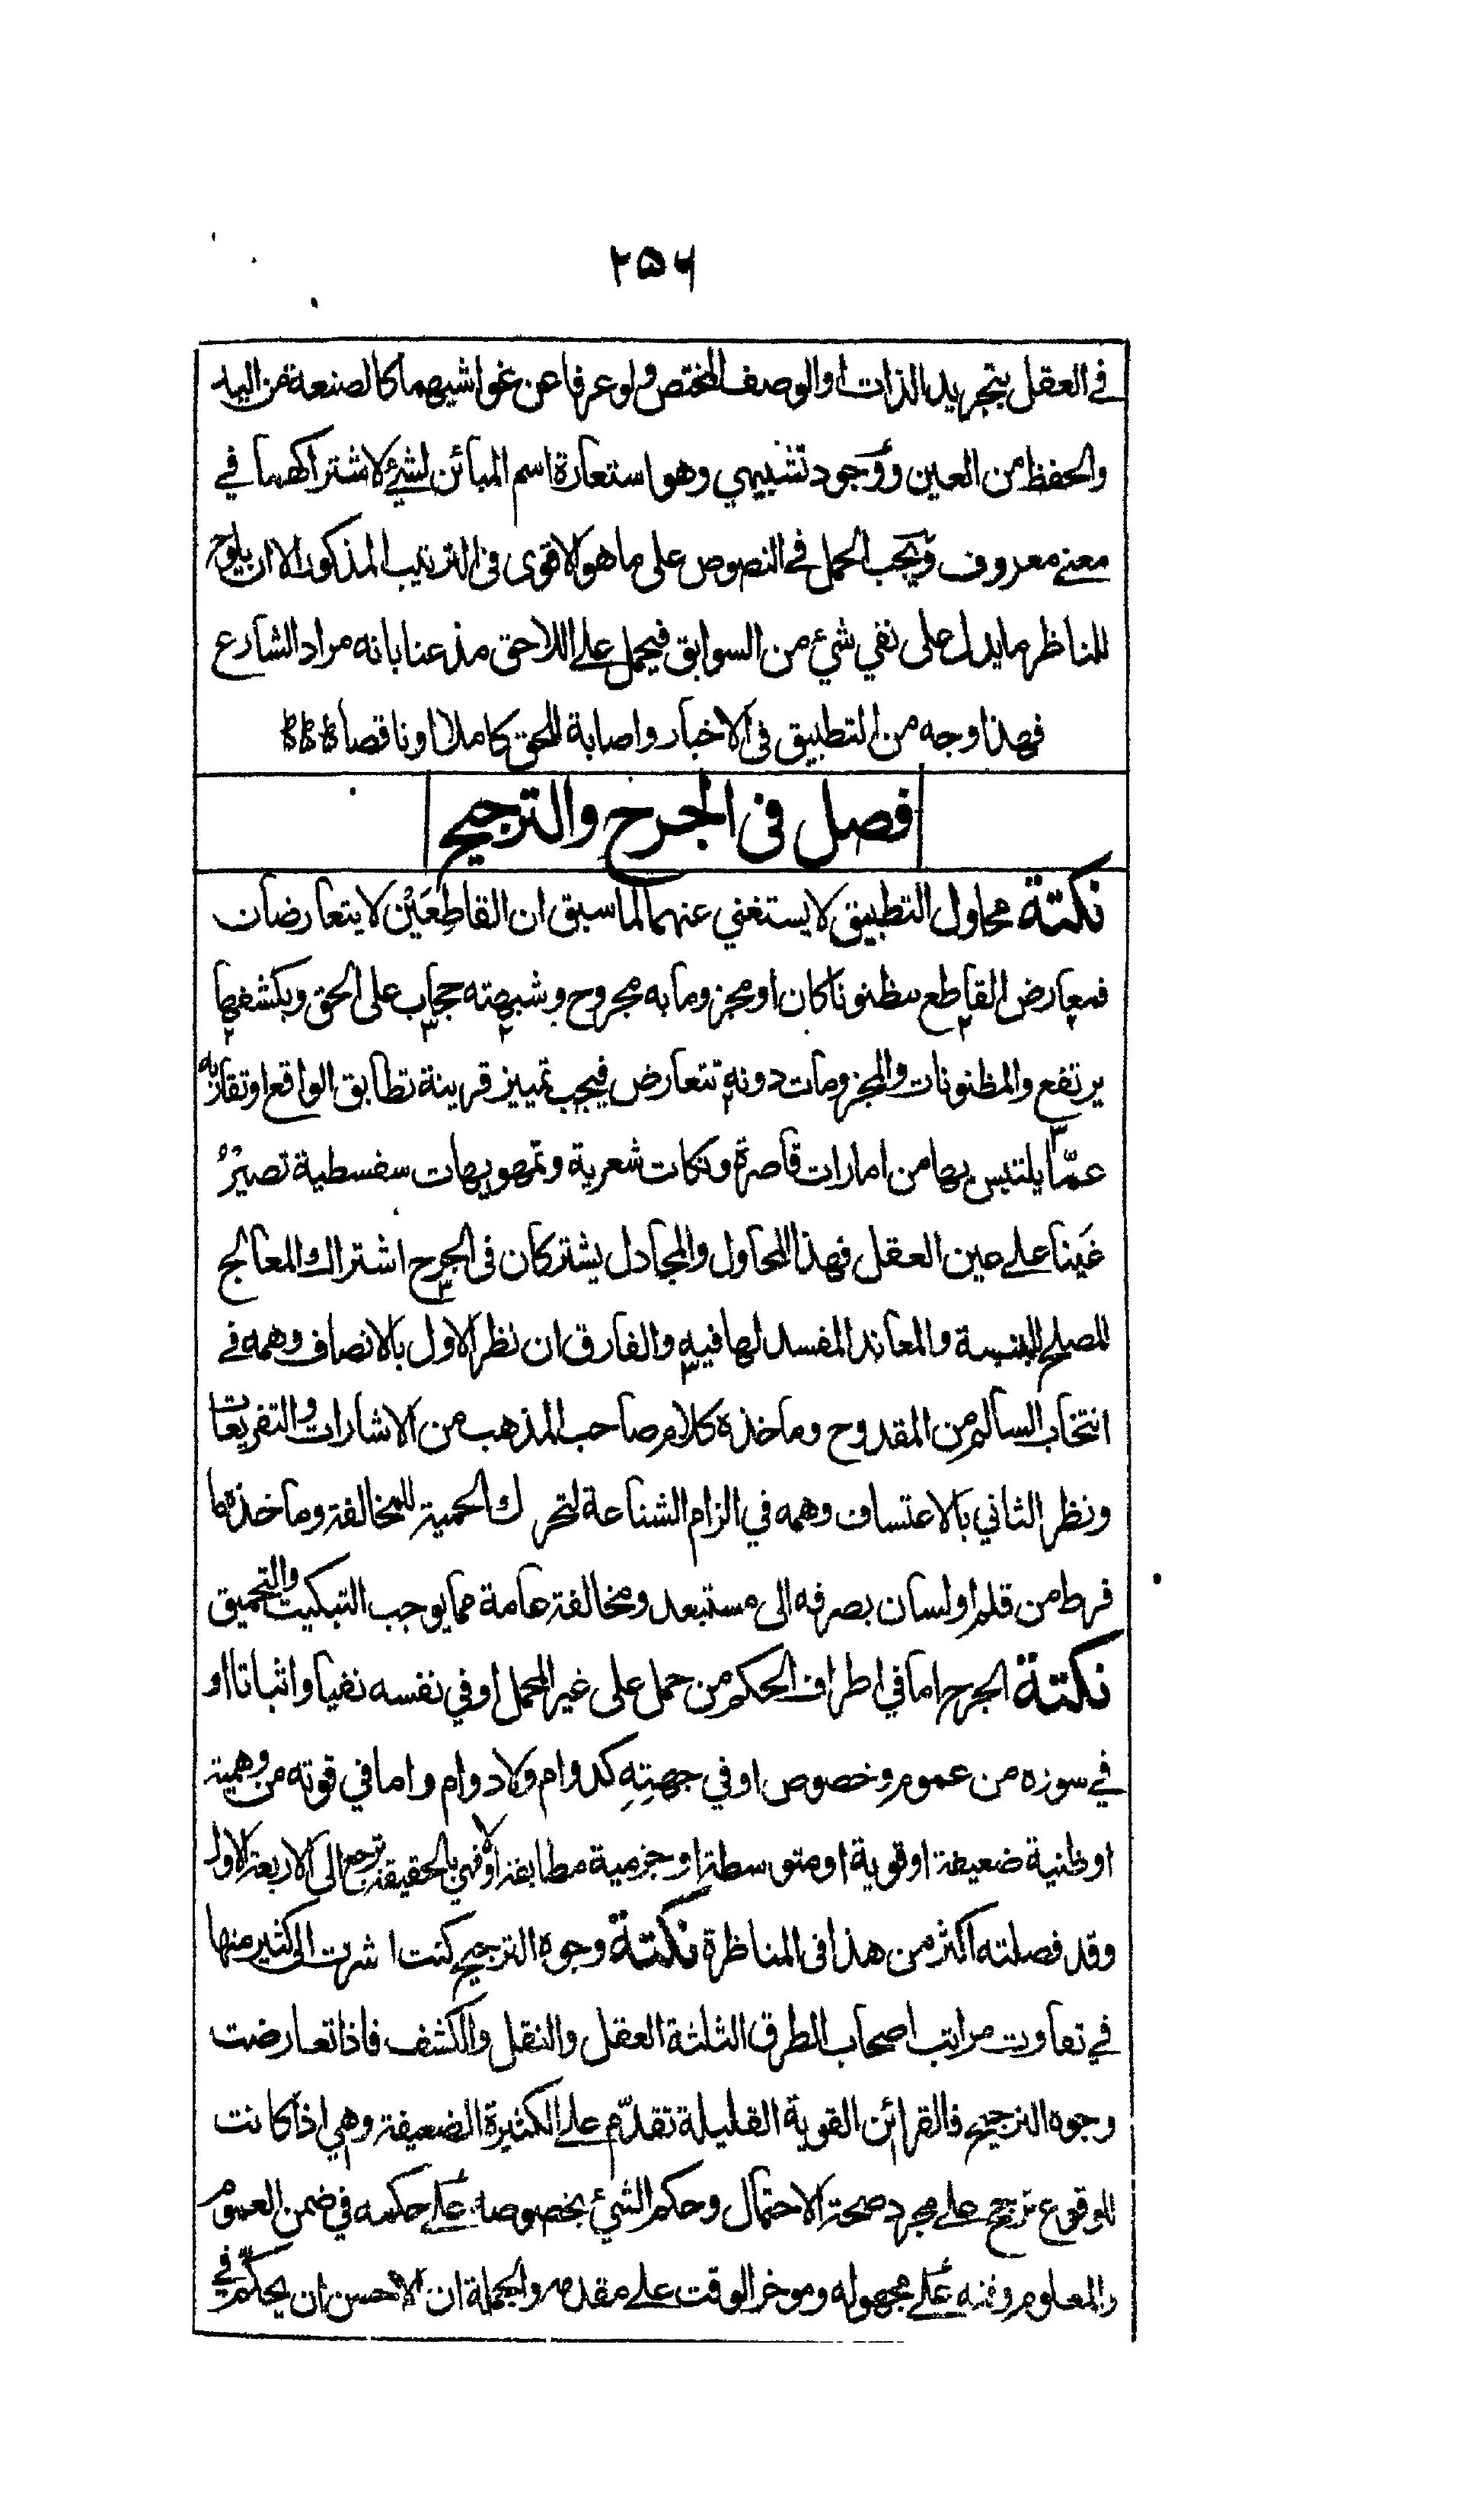 ۲۵۶
في العقل بتجريد الذات او الوصف المختص ولو عرفا عن غواشيهما كالصنعة من اليد
والحفظ من العين ووجود تشبيهي وهو استعارة اسم المبائن لشئ لاشتراكهما في
معنے معروف ويجب الحمل في النصوص على ما هو الاقوى في الترتيب المذكور الا ان يلوح
للمناظر ما يدل على نفي شئ من السوابق فيحمل على اللاحق مذعنا بانه مراد الشارع
فهذا وجه من التطبيق في الاخبار واصابة للحق كاملا او ناقصا
فصل في الجرح والترجيح
نكتة محاول التطبيق لا يستغني عنهما لما سبق ان القاطعَيْن لا يتعارضان
فمعارض القاطع مظنونا كان او مجزوما به مجروح وشبهته حجاب على الحق وبكشفها
يرتفع والمظنونات والمجزومات دونه تتعارض فيجب تمييز قرينة تطابق الواقع او تقاربه
عمّا يلتبس بها من امارات قاصرة ونكات شعرية وتمويهات سفسطية تصير
غَينا على عين العقل فهذا المحاول والمجادل يشتركان في الجرح اشتراك المعالج
المصلح للبنية والمعاند المفسد لها فيه والفارق ان نظر الاول بالانصاف وهمه في
انتخاب السالم من المقدوح وماخذه كلام صاحب المذهب من الاشارات والتفريعات
ونظر الثاني بالاعتساف وهمه في الزام الشناعة لتحرك الحمية للمخالفة وماخذه ما
فرط من قلم او لسان بصرفه الى مستبعد ومخالفة عامة مما يوجب التبكيت والتحميق
نكتة الجرح اما في اطراف الحكم من حمل على غير المحمل او في نفسه نفيا واثباتا او
في سوره من عموم وخصوص او في جهتِهِ كدوام ولا دوام واما في قوته من وهمية
او ظنية ضعيفة او قوية او متوسطة او جزمية مطابقة اولا فهي بالحقيقة ترجع الى الاربعة الاول
وقد فصلته اكثر من هذا في المناظرة نكتة وجوه الترجيح كنت اشرت الى كثير منها
في تفاوت مراتب اصحاب الطرق الثلثة العقل والنقل والكشف فاذا تعارضت
وجوه الترجيح فالقرائن القوية القليلة تقدّم على الكثيرة الضعيفة وهي اذا كانت
للوقوع ترجح على مجرد صحة الاحتمال وحكم الشئ بخصوصه على حكمه في ضمن العموم
والمعلوم وقته على مجهوله وموخر الوقت على مقدمه وبالجملة ان الاحسن ان يحكّم في